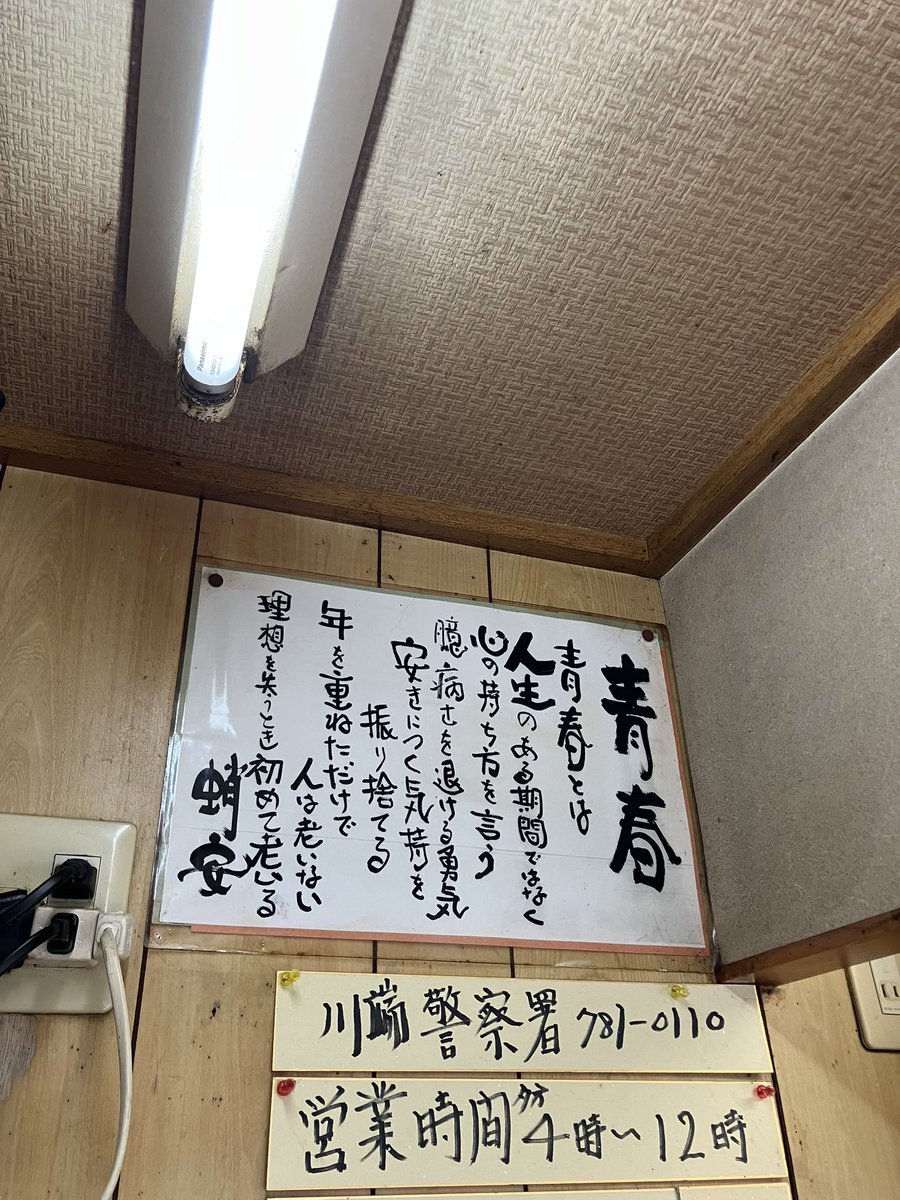 Panasonic
青春
青春とは
人生のある期間ではなく
心の持ち方を言う
臆病さを退ける勇気
安きにつく気持を
振り捨てる
年を重ねただけで
人は老いない
理想を失うとき初めて老いる
蛸安
川端警察署 781-0110
営業時間 夕方 4時〜12時